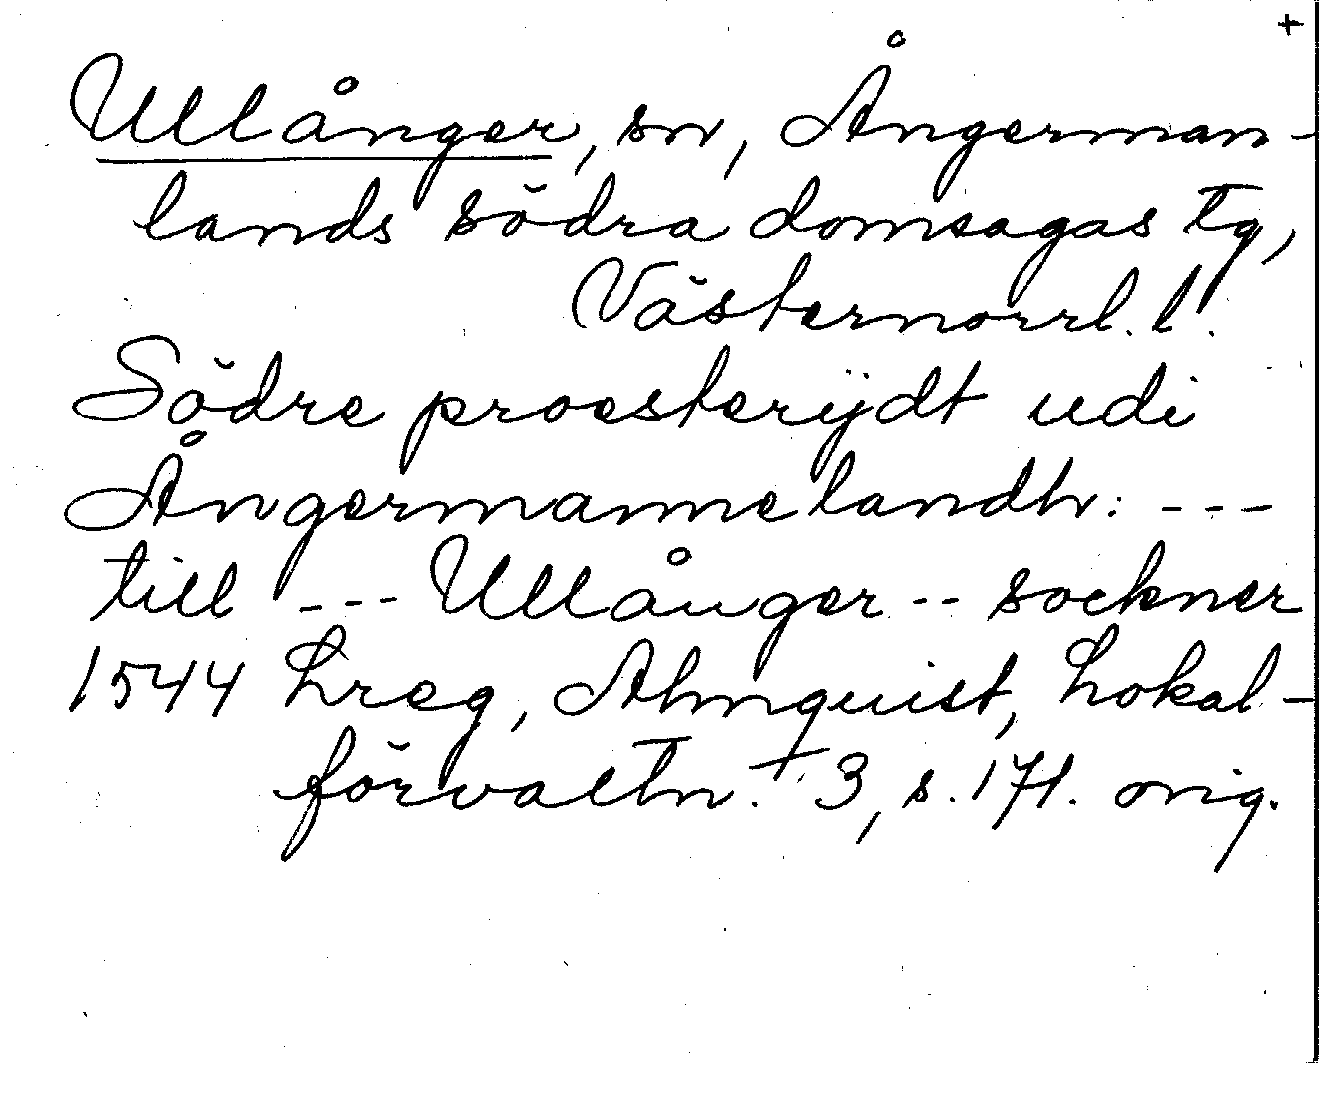 +
Ullånger, sn, Ångerman-
lands södra domsagas tg,
Västernorrl. l.
Södre proesterijdt udi
Ångermannelandh: ---
till --- Ullånger -- sockner
1544 Lreg, Almquist, Lokal-
förvaltn. 3, s. 171. orig.